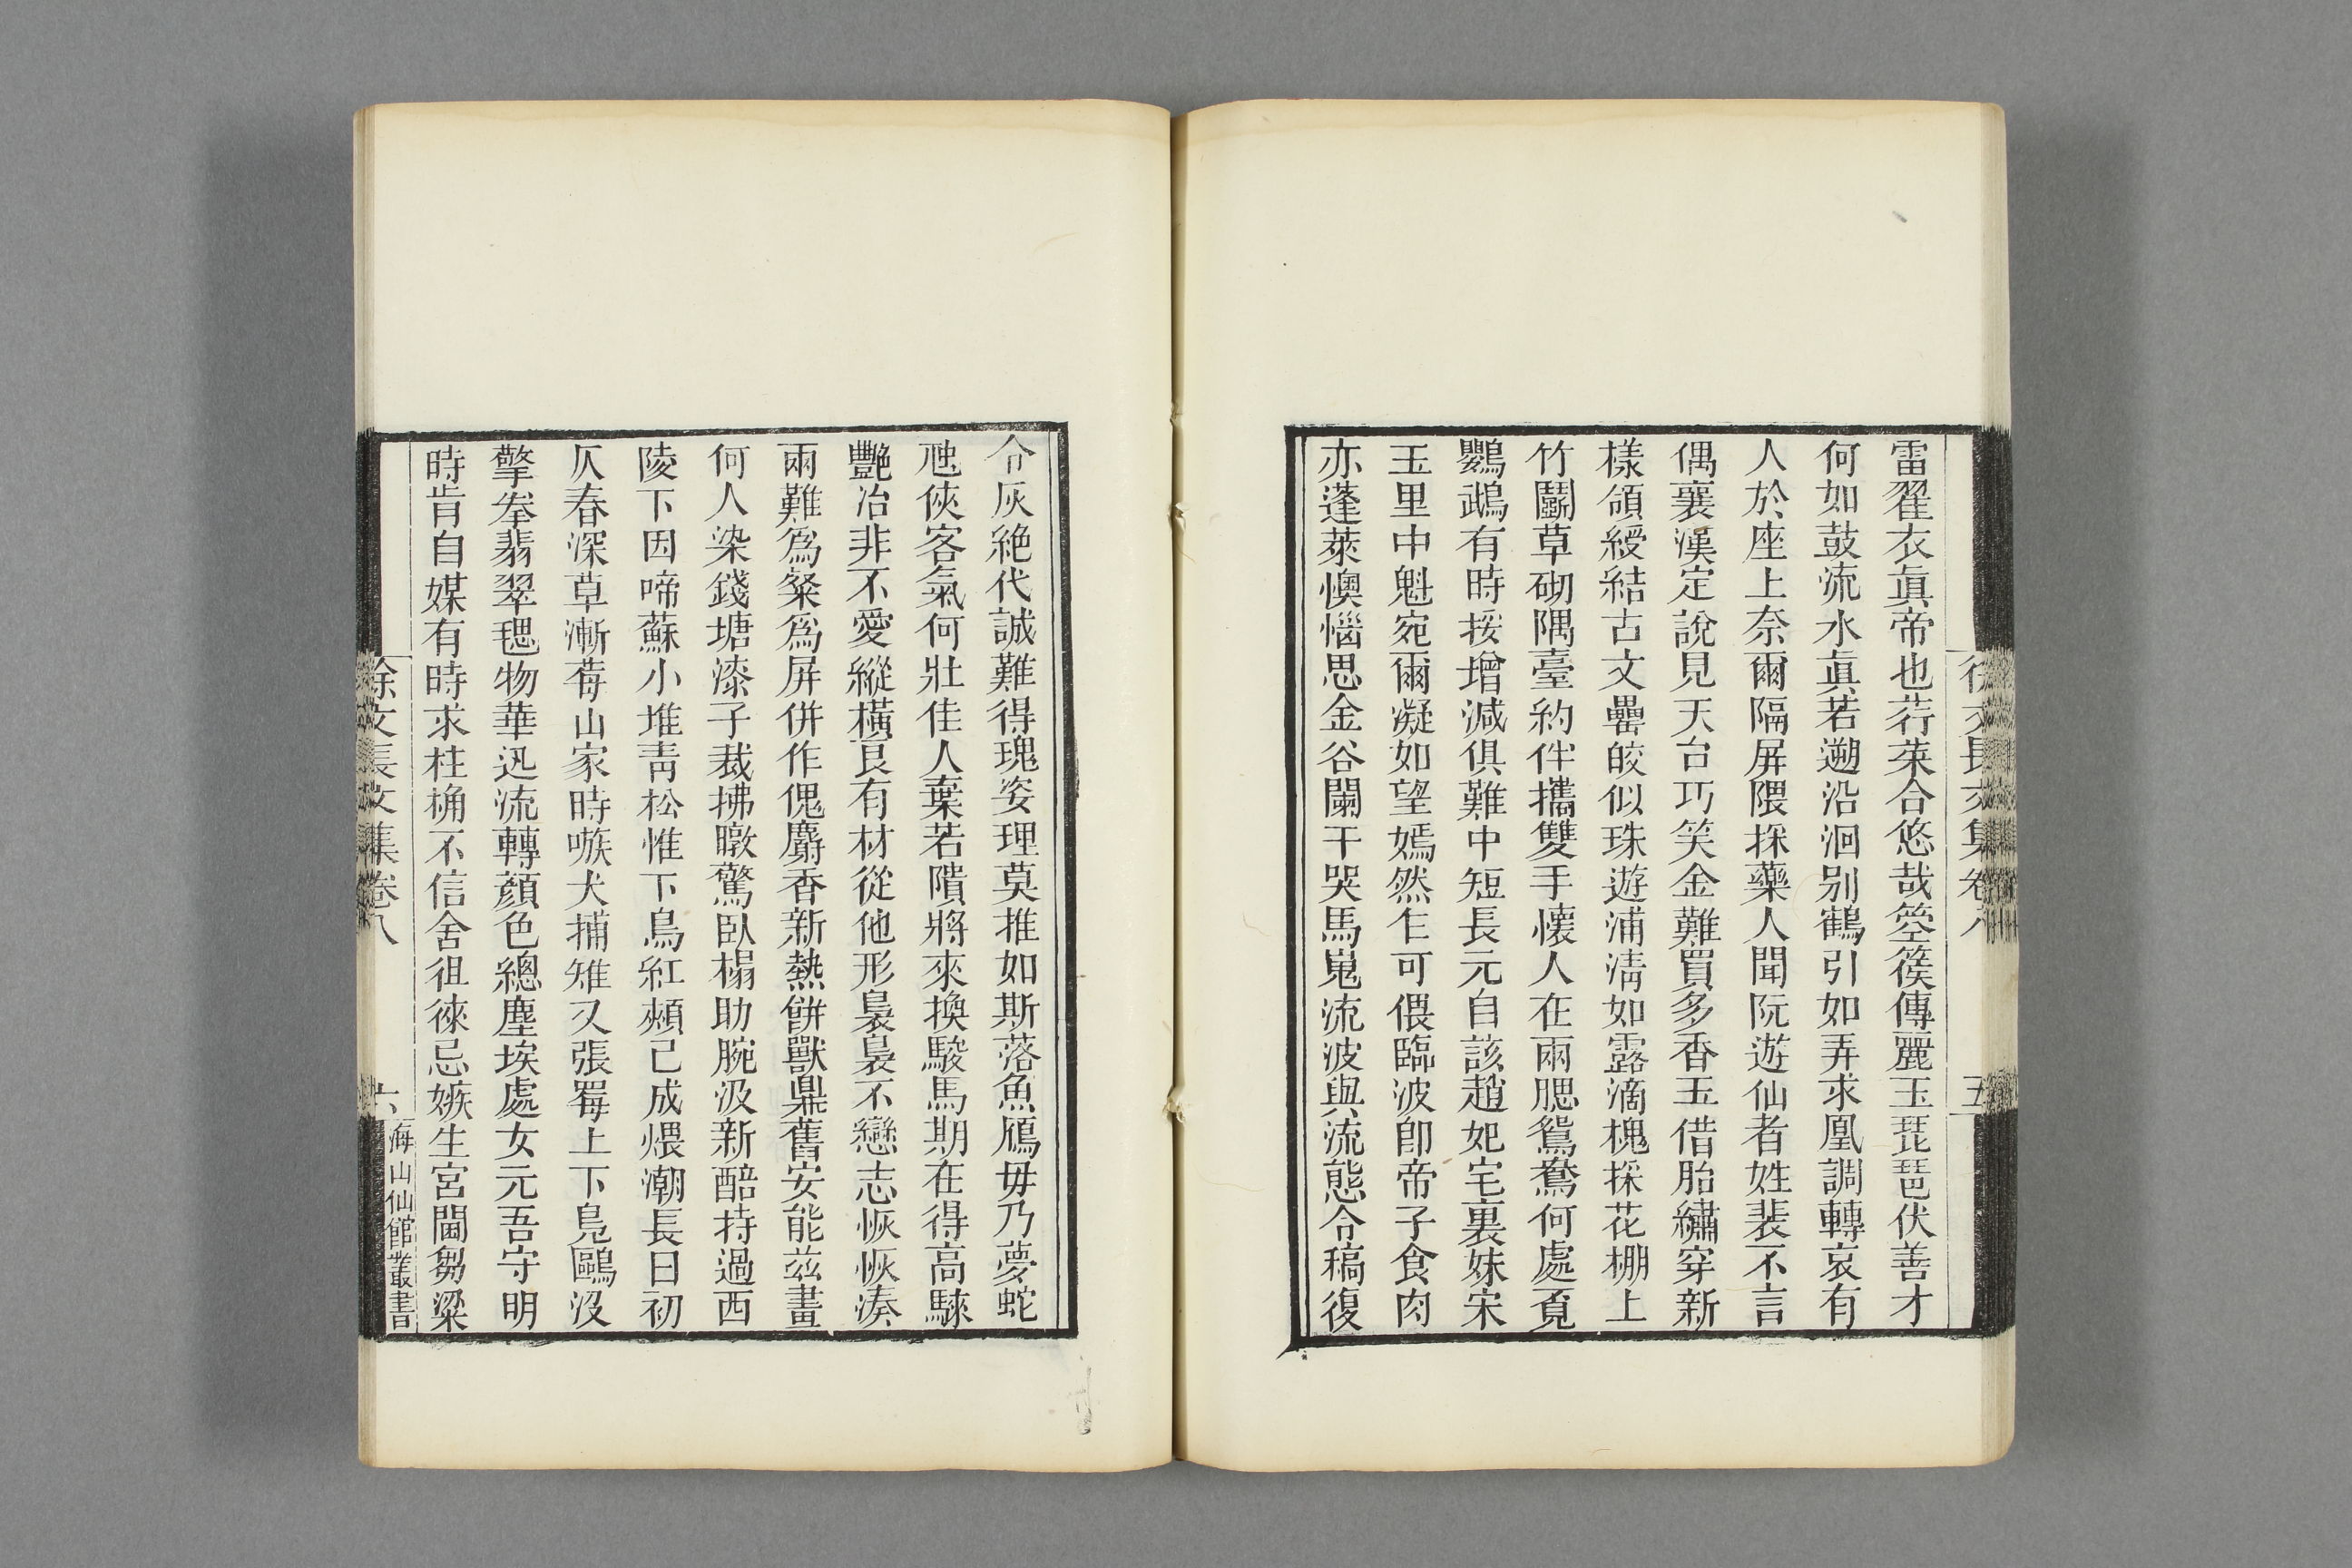 徐文長文集卷八
五
雷翟衣真帝也荇菜合悠哉箜篌傳麗玉琵琶伏善才
何如鼓流水真若遡沿洄別鶴引如弄求凰調轉哀有
人於座上奈爾隔屏隈採藥人聞阮遊仙者姓裴不言
偶襄漢定說見天台巧笑金難買多香玉借胎繡穿新
樣領綬結古文罍皎似珠遊浦淸如露滴槐採花棚上
竹鬭草砌隅臺約伴攜雙手懷人在兩腮鴛鴦何處覔
鸚鵡有時挼增減俱難中短長元自該趙妃宅裏妹宋
玉里中魁宛爾凝如望嫣然乍可偎臨波卽帝子食肉
亦蓬萊懊惱思金谷闌干哭馬嵬流波與流態令稿復
令灰絶代誠難得瑰姿理莫推如斯落魚鴈毋乃夢蛇
虺俠客氣何壯佳人葉若隤將來換駿馬期在得高騋
艷冶非不愛縱橫良有材從他形裊裊不戀志恢恢湊
兩難爲粲爲屏併作傀麝香新熱餅獸鼎舊安能茲畫
何人染錢塘漆子裁拂暾驚臥榻助腕汲新醅持過西
陵下因啼蘇小堆靑松惟下鳥紅頰已成煨潮長日初
仄春深草漸莓山家時嗾犬捕雉又張罞上下鳧鷗沒
擎拳翡翠毸物華迅流轉顏色總塵埃處女元吾守明
時肯自媒有時求柱桷不信舍徂徠忌嫉生宮閫芻粱
徐文長文集卷八
六
海山仙館叢書